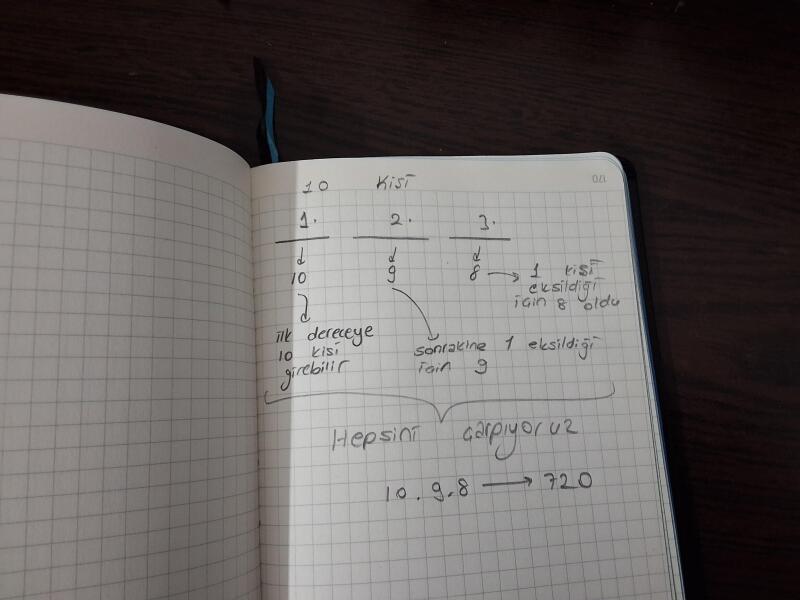 170
10 Kişi
1. 2. 3.
10 9 8 → 1 kişi
eksildiği
için 8 oldu
ilk dereceye
10 kişi
girebilir
sonrakine 1 eksildiği
için 9
Hepsini çarpıyoruz
10.9.8 → 720